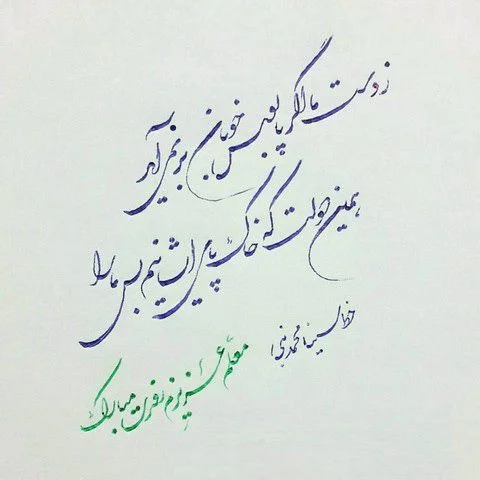 ز دست ما اگر پابوس خوبان بر نمی‌آید
همین دولت که خاک پای ایشانیم بس ما را
خط سینا محمد
معلم عزیزم روزت مبارک